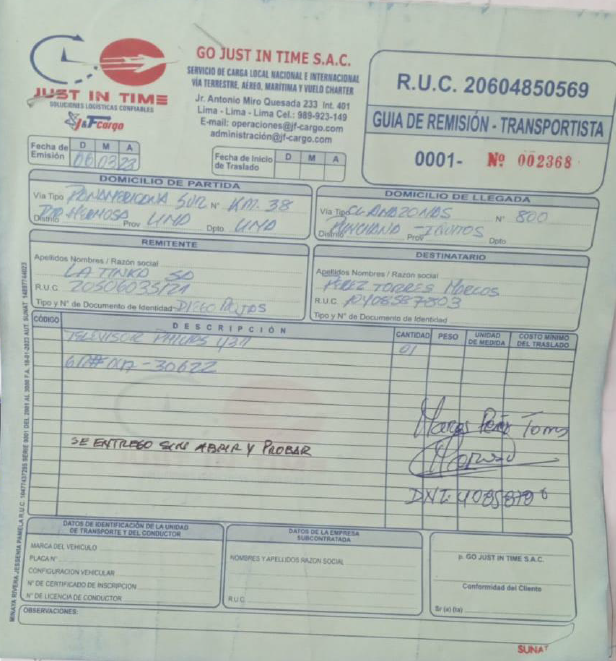 JUST IN TIME
SOLUCIONES LOGISTICAS CONFIABLES
J&F cargo
GO JUST IN TIME S.A.C.
SERVICIO DE CARGA LOCAL NACIONAL E INTERNACIONAL
VÍA TERRESTRE, AEREO, MARÍTIMA Y VUELO CHARTER
Jr. Antonio Miro Quesada 233 Int. 401
Lima - Lima - Lima Cel.: 989-923-149
E-mail: operaciones@jf-cargo.com
administración@jf-cargo.com
R.U.C. 20604850569
GUIA DE REMISIÓN - TRANSPORTISTA
0001- Nº 002368
Fecha de Emisión D M A
Fecha de Inicio de Traslado D M A
DOMICILIO DE PARTIDA
Vía Tipo PANAMERICANA SUR N° KM. 38
Distrito Prov LIMA Dpto LIMA
DOMICILIO DE LLEGADA
Vía Tipo N° 800
Distrito PUNCHANA - Prov Dpto
REMITENTE
Apellidos Nombres / Razón social
LA TINKA SA
R.U.C.
Tipo y N° de Documento de Identidad DIEGO
DESTINATARIO
Apellidos Nombres / Razón social
PEREZ TORRES MARCOS
R.U.C.
Tipo y N° de Documento de Identidad
CÓDIGO DESCRIPCIÓN CANTIDAD PESO UNIDAD DE MEDIDA COSTO MÍNIMO DEL TRASLADO
TELEVISOR PHILIPS 01
-30622
SE ENTREGO SIN ABRIR Y PROBAR
Marcos Perez Torres
DNI:
DATOS DE IDENTIFICACIÓN DE LA UNIDAD DE TRANSPORTE Y DEL CONDUCTOR
MARCA DEL VEHICULO
PLACA N°
CONFIGURACION VEHICULAR
N° DE CERTIFICADO DE INSCRIPCION
N° DE LICENCIA DE CONDUCTOR
DATOS DE LA EMPRESA SUBCONTRATADA
NOMBRES Y APELLIDOS RAZON SOCIAL
R.U.C.
p. GO JUST IN TIME S.A.C.
Conformidad del Cliente
Sr (a) (ta)
OBSERVACIONES:
SUNAT